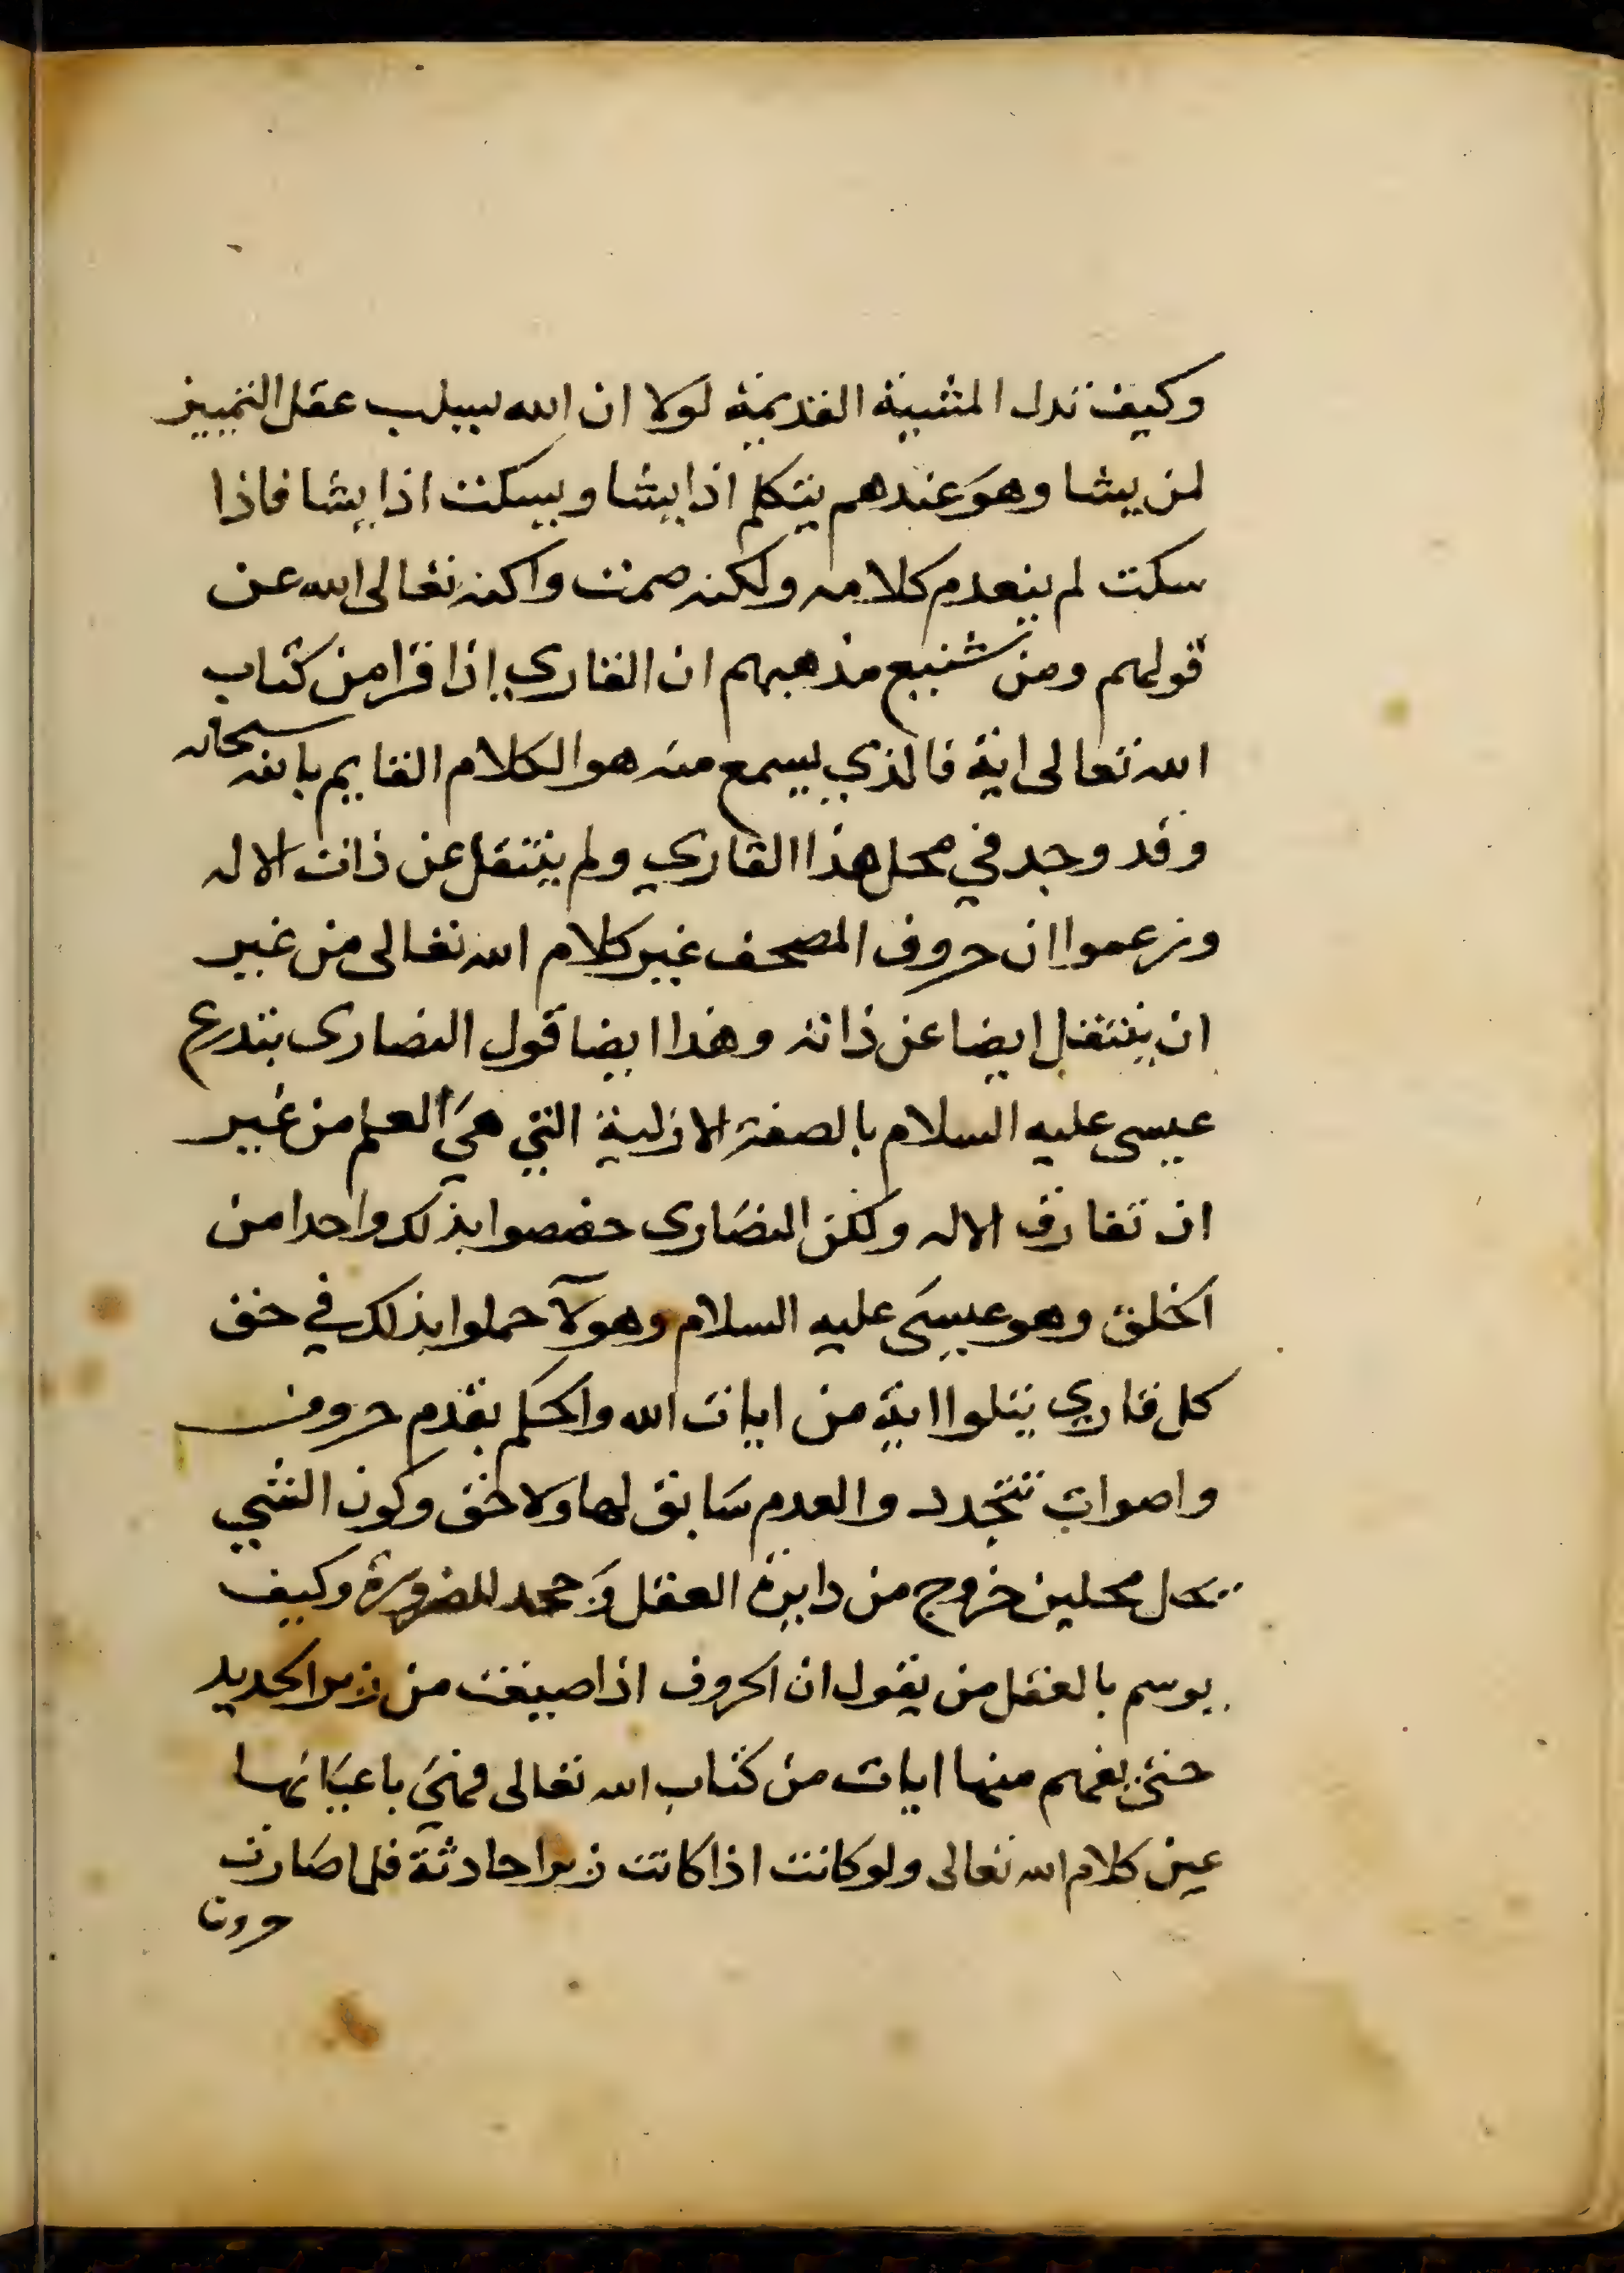 وكيف تدل المشية القديمة لولا ان الله يسلب عقل التمييز
لمن يشا وهو عندهم يتكلم اذا يشا ويسكت اذا يشا فاذا
سكت لم ينعدم كلامه ولكنه صمت واكنه تعالى الله عن
قولهم ومن شنيع مذهبهم ان القاري اذا قرا من كتاب
الله تعالى اية فالذي يسمع منه هو الكلام القايم بالله سبحانه
وقد وجد في محل هذا القاري ولم ينتقل عن ذات الاله
وزعموا ان حروف المصحف غير كلام الله تعالى من غير
ان ينتقل ايضا عن ذاته وهذا ايضا قول النصارى بتدرع
عيسى عليه السلام بالصفة الازلية التي هي العلم من غير
ان تفارق الاله ولكن النصارى خصصوا بذلك واحدا من
الخلق وهو عيسى عليه السلام وهولآ حملوا بذلك في حق
كل قاري يتلوا اية من ايات الله والحكم بقدم حروف
واصوات تتجدد والعدم سابق لها ولاحق وكون الشي
يحل محلين خروج من دايرة العقل وجحد للضرورة وكيف
يوسم بالعقل من يقول ان الحروف اذا صيغت من زبر الحديد
حتى يفهم منها ايات من كتاب الله تعالى فهي باعيانها
عين كلام الله تعالى ولو كانت اذا كانت زبرا حادثة فلما صارت
حروفا